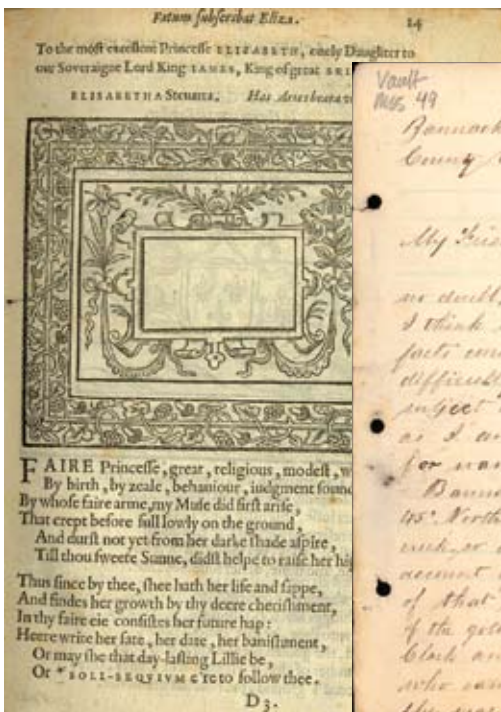 Fatum subscribat Eliza.
14
To the most excellent Princesse ELIZABETH, onely Daughter to
our Soveraigne Lord King IAMES, King of great BRI
ELISABETHA Steuarta. Has Artes beata
FAIRE Princesse, great, religious, modest, w
By birth, by zeale, behauiour, iudgment sound
By whose faire arme, my Muse did first arise,
That crept before full lowly on the ground,
And durst not yet from her darke shade aspire,
Till thou sweete Sunne, didst helpe to raise her hi
Thus since by thee, shee hath her life and sappe,
And findes her growth by thy deere cherishment,
In thy faire eie consistes her future hap:
Heere write her fate, her date, her banishment,
Or may she that day-lasting Lillie be,
Or * SOLI-SEQVIVM e're to follow thee.
D3.
Vault
MSS 49
Bannack
County
My Frie
no doubt
I think
facts con
difficult
subject
as I a
for wan
Bann
45° North
creek, or
account
of that
of the gol
Clark an
who